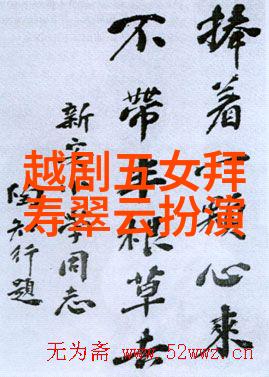 捧着一顆心來
不帶半根草去
新安小學同志
陶知行題
越剧五女拜
寿翠云扮演
无为斋 www.52wwz.cn